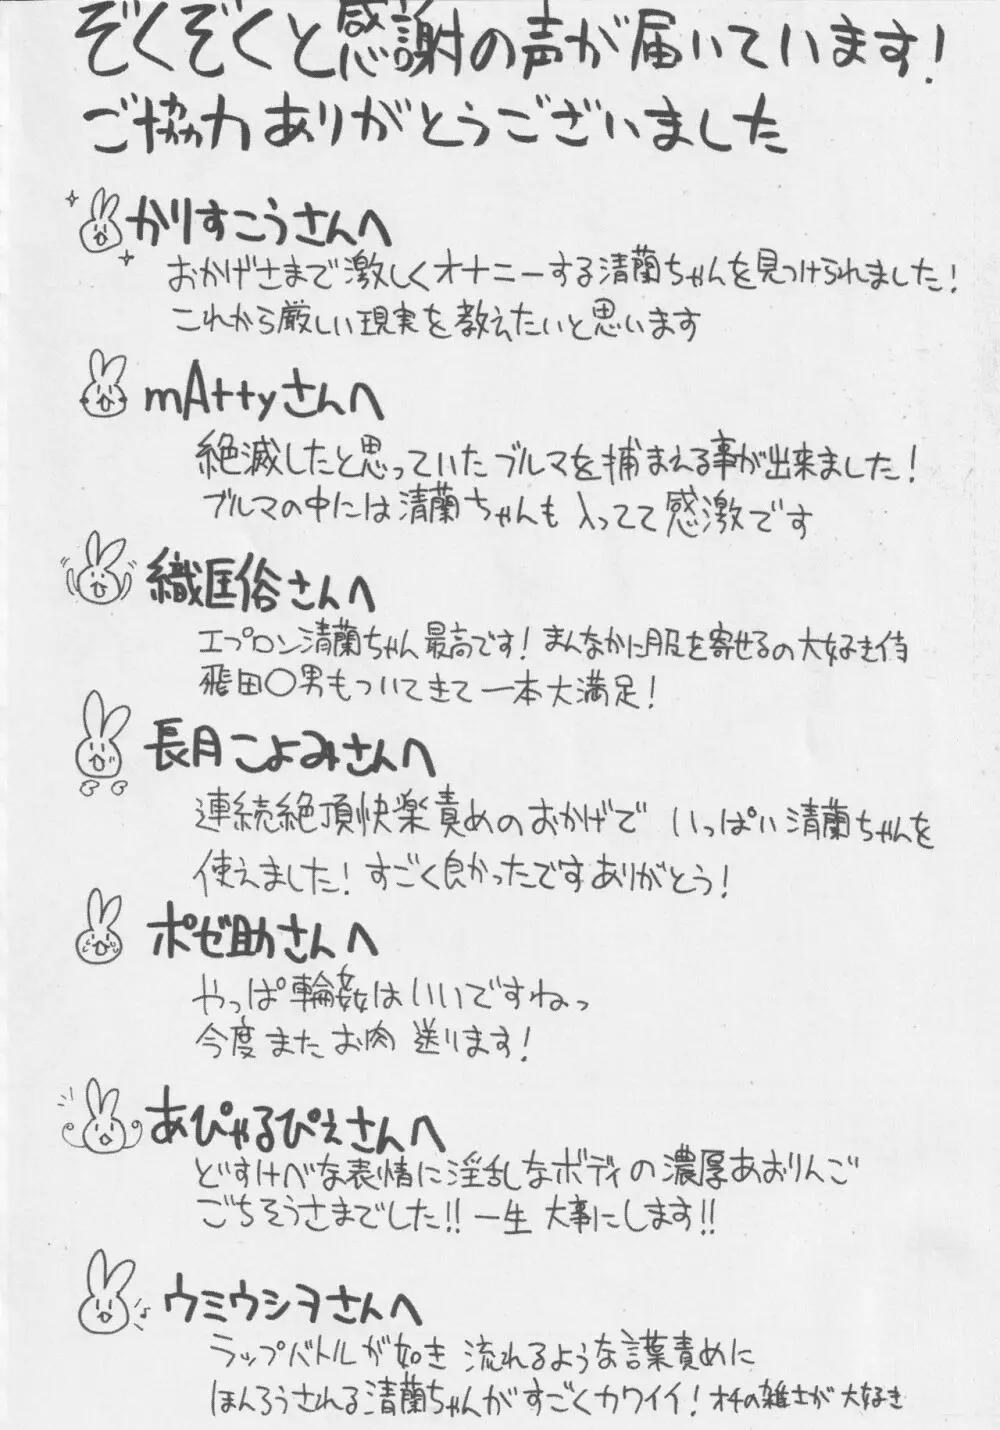 ぞくぞくと感謝の声が届いています!
ご協力ありがとうございました
かりすこうさんへ
おかげさまで激しくオナニーする清蘭ちゃんを見つけられました!
これから厳しい現実を教えたいと思います
mAttyさんへ
絶滅したと思っていたブルマを捕まえる事が出来ました!
ブルマの中には清蘭ちゃんも入ってて感激です
織匡俗さんへ
エプロン清蘭ちゃん最高です!まんなかに服を寄せるの大好き侍
飛田〇男もついてきて一本大満足!
長月こよみさんへ
連続絶頂快楽責めのおかげで いっぱい清蘭ちゃんを
使えました!すごく良かったですありがとう!
ポゼ助さんへ
やっぱ輪姦はいいですねっ
今度またお肉送ります!
あぴゃるぴえさんへ
どすけべな表情に淫乱なボディの濃厚あおりんご
ごちそうさまでした!!一生大事にします!!
ウミウシヲさんへ
ラップバトルが如き 流れるような言葉責めに
ほんろうされる清蘭ちゃんがすごくカワイイ!オチの雑さが大好き